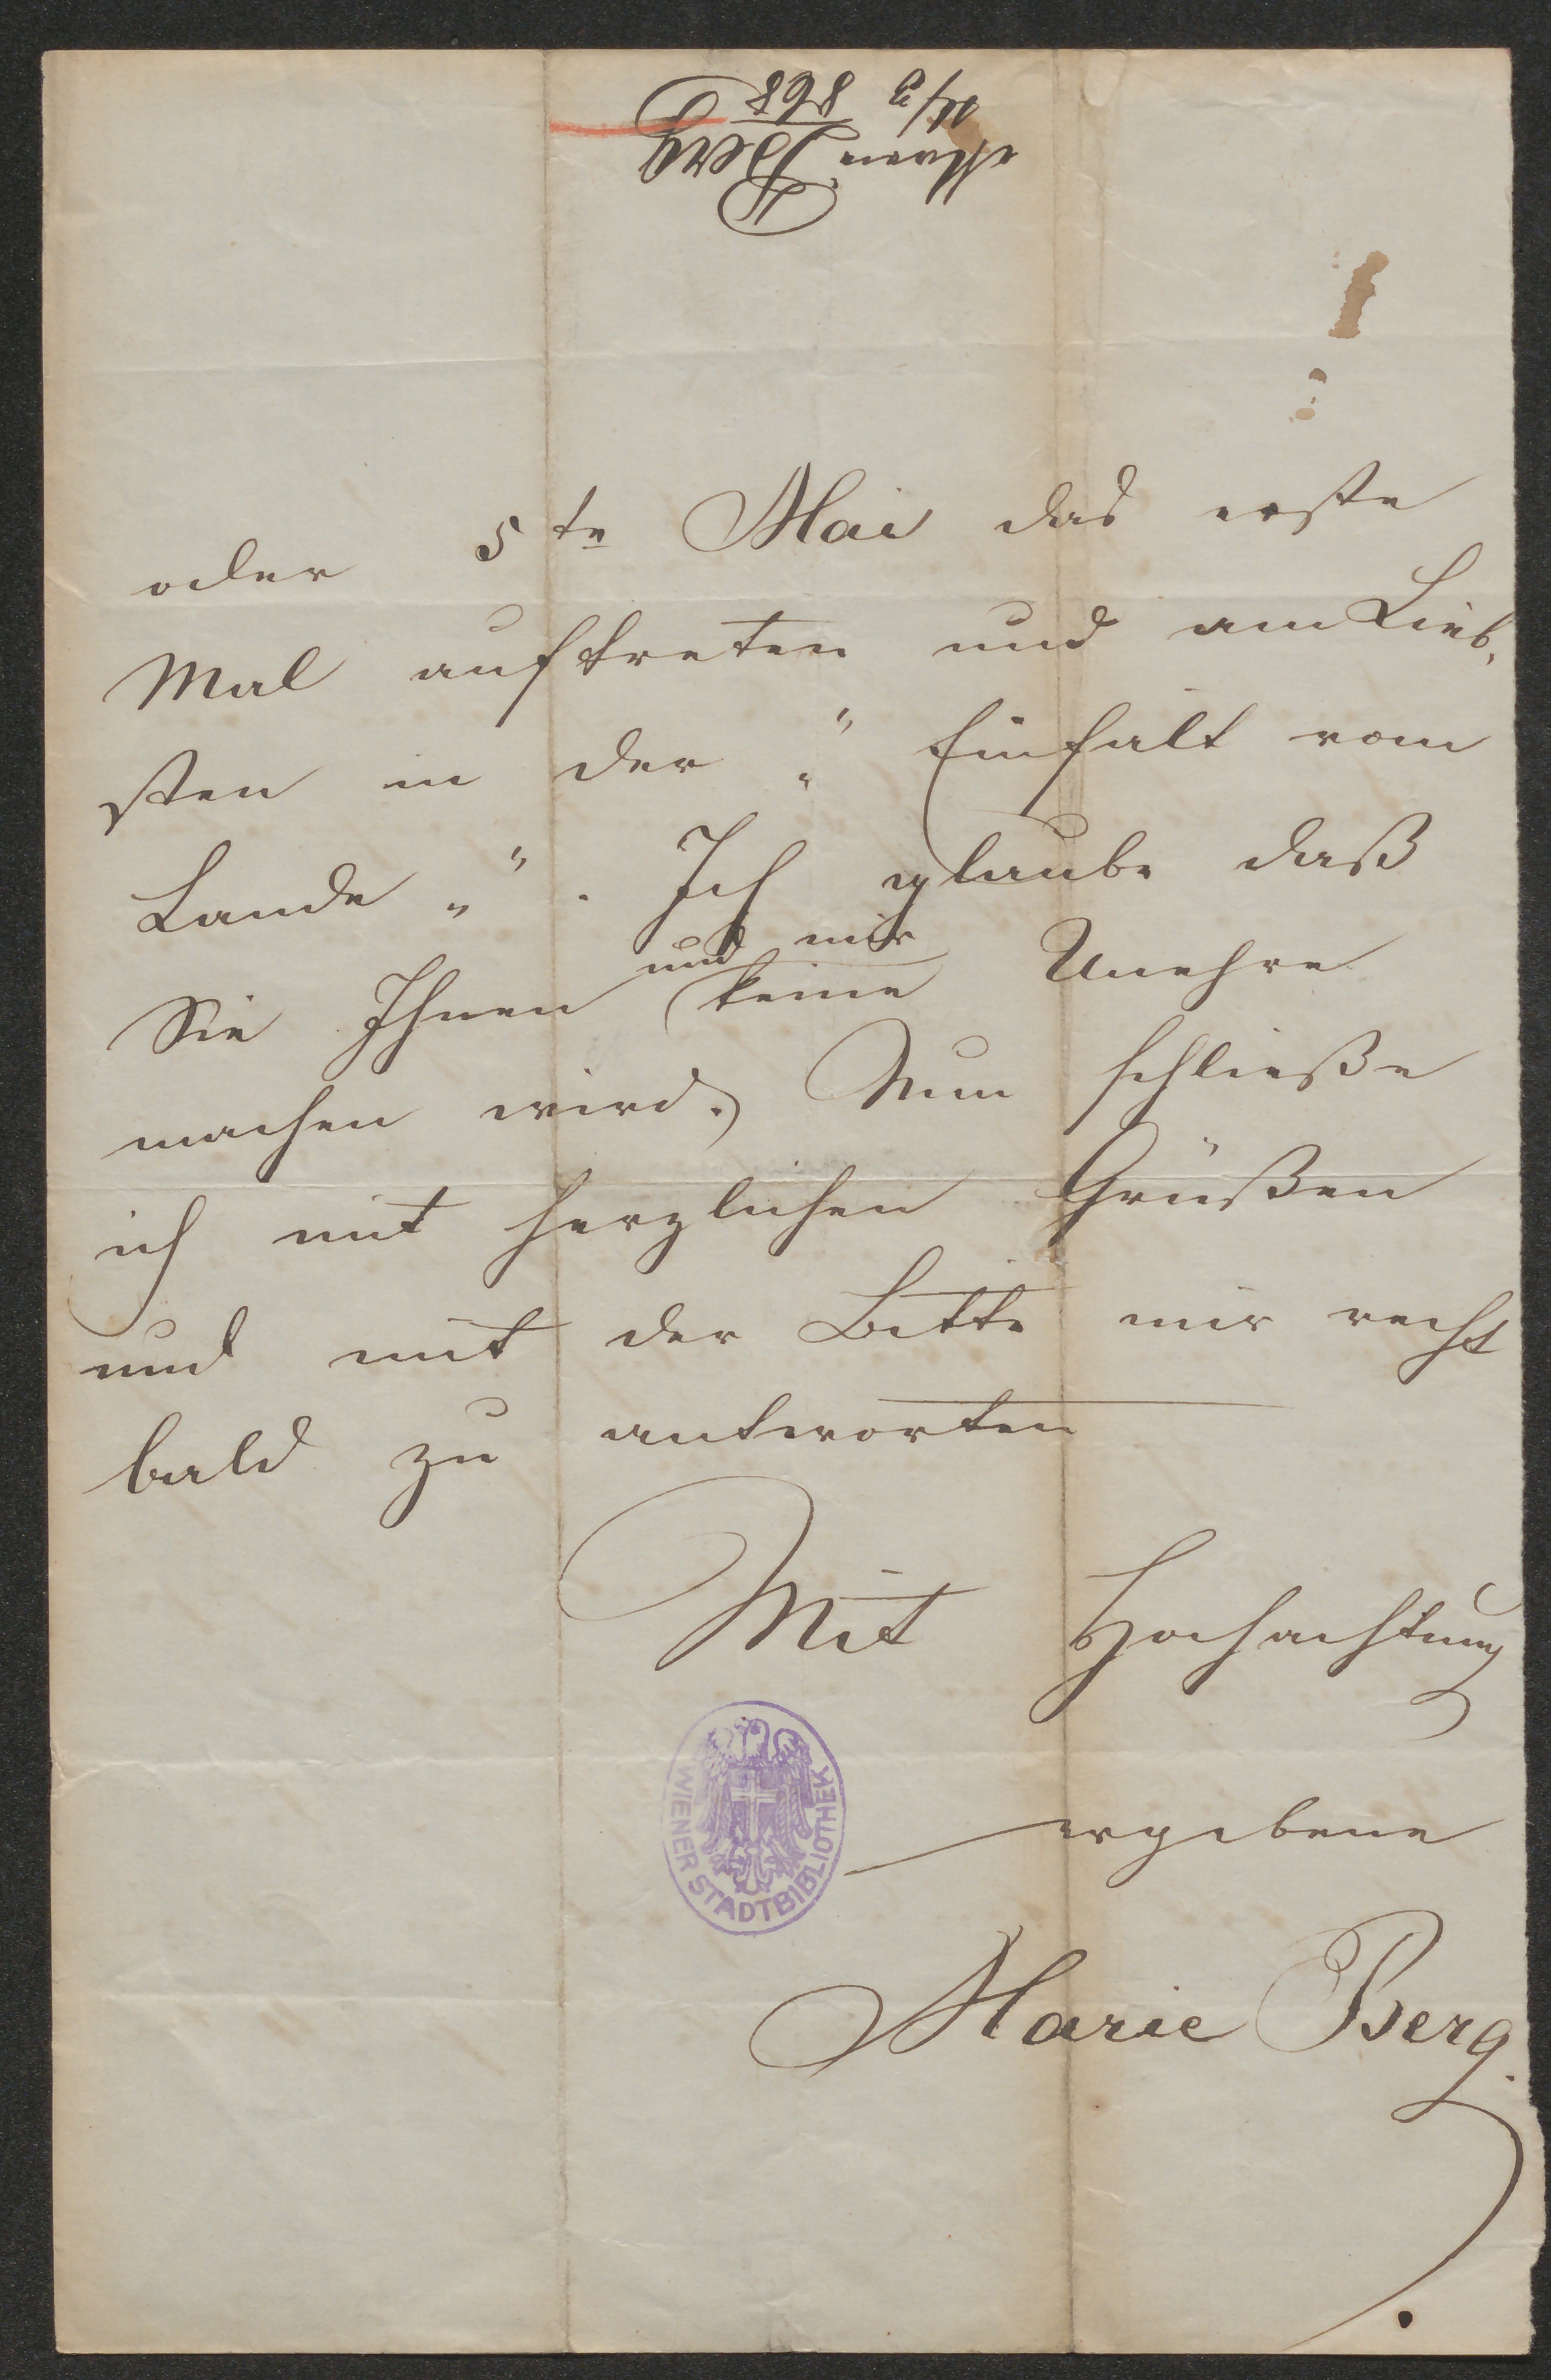 Berg
868
oder 5te Mai das erste
Mal auftreten und am Lieb,
sten in der „" Einfalt vom
Lande „". Ich glaube daß
Sie Ihnen und mir keine Unehre
machen wird. Nun schließe
ich mit herzlichen Grüßen
und mit der Bitte mir recht
bald zu antworten
Mit Hochachtung
ergebene
Marie Berg.
WIENER STADTBIBLIOTHEK